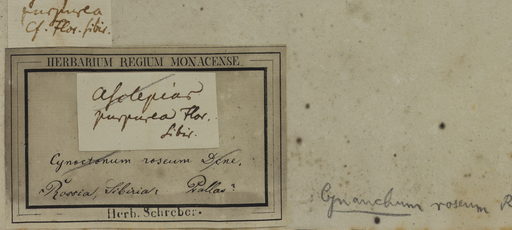 purpurea
Cf. Flor. sibir.
HERBARIUM REGIUM MONACENSE.
Asclepias
purpurea Flor.
Sibir.
Cynoctonum roseum Dcne.
Rossia, Sibiria: Pallas.
Herb. Schreber.
Cynanchum roseum R